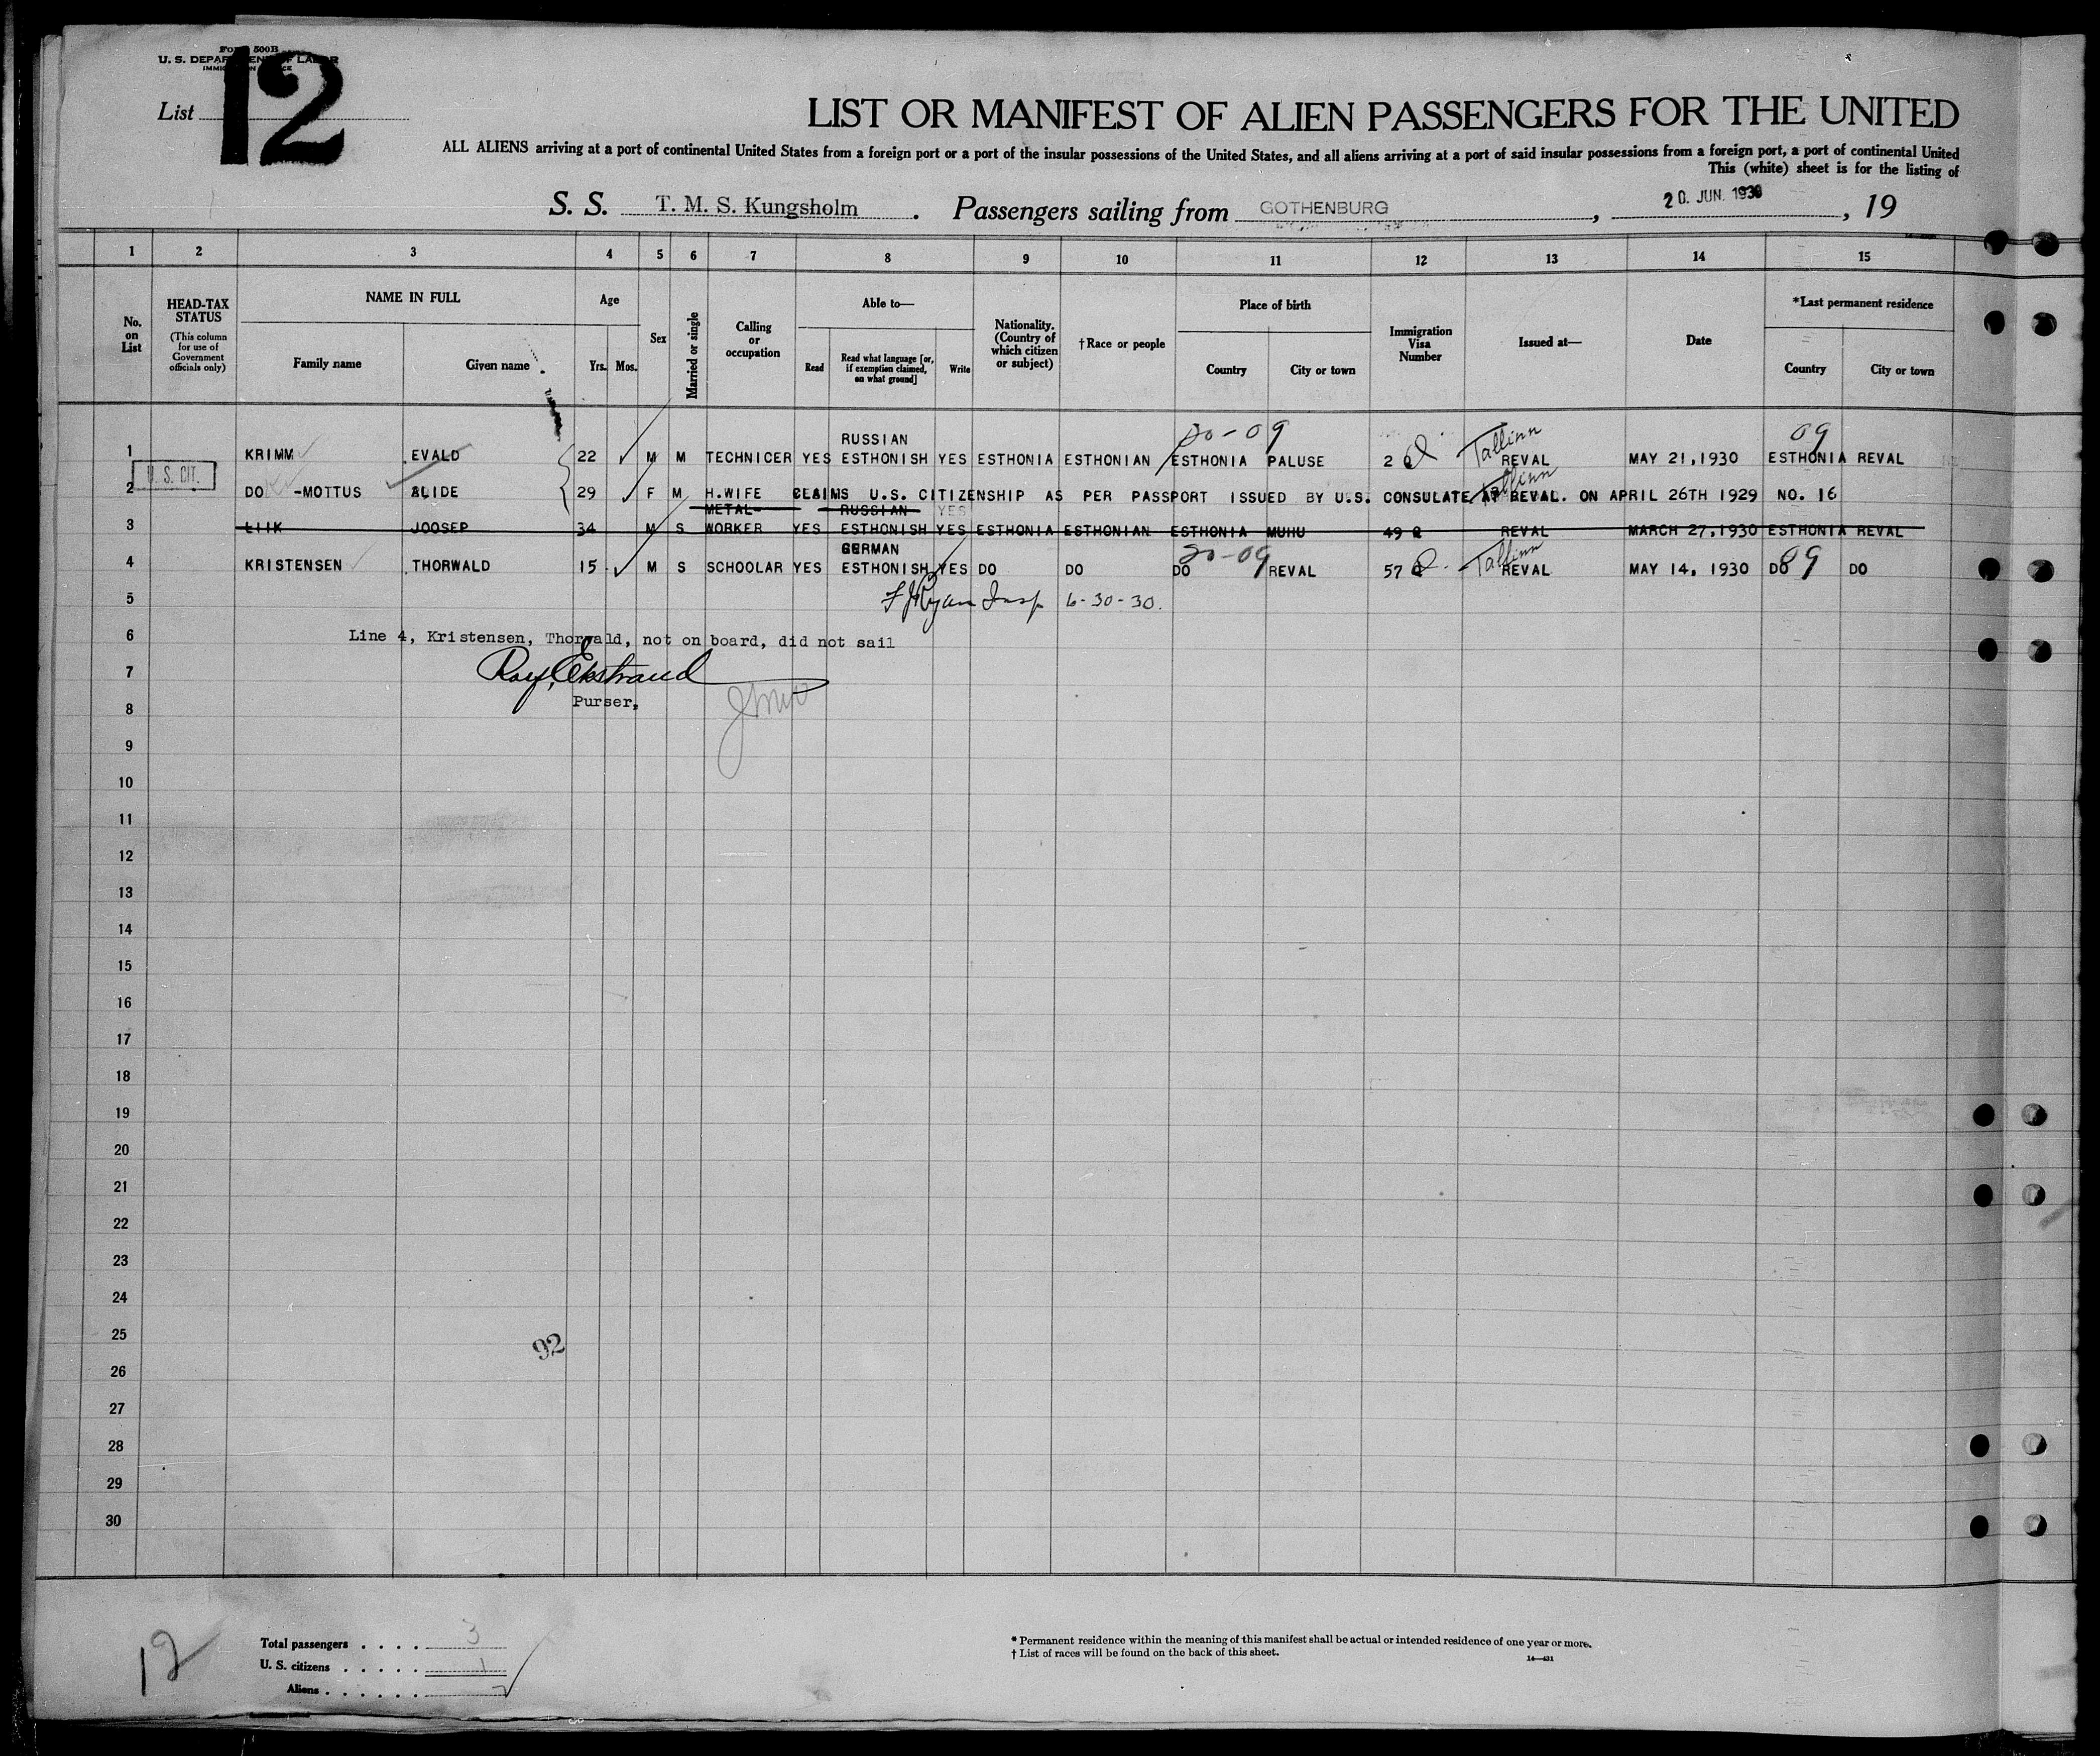 Form 500B
U. S. DEPARTMENT OF LABOR
IMMIGRATION SERVICE
List 12
LIST OR MANIFEST OF ALIEN PASSENGERS FOR THE UNITED
ALL ALIENS arriving at a port of continental United States from a foreign port or a port of the insular possessions of the United States, and all aliens arriving at a port of said insular possessions from a foreign port, a port of continental United
This (white) sheet is for the listing of
S. S. T. M. S. Kungsholm . Passengers sailing from GOTHENBURG , 20. JUN. 1930 , 19
1 2 3 4 5 6 7 8 9 10 11 12 13 14 15
No. on List
HEAD-TAX STATUS
(This column for use of Government officials only)
NAME IN FULL
Family name Given name
Age
Yrs. Mos.
Sex
Married or single
Calling or occupation
Able to—
Read Read what language [or, if exemption claimed, on what ground] Write
Nationality. (Country of which citizen or subject)
†Race or people
Place of birth
Country City or town
Immigration Visa Number
Issued at—
Date
*Last permanent residence
Country City or town
20-09 Tallinn 09
RUSSIAN
1 KRIMM EVALD 22 M M TECHNICER YES ESTHONISH YES ESTHONIA ESTHONIAN ESTHONIA PALUSE 2 Q REVAL MAY 21,1930 ESTHONIA REVAL
U. S. CIT.
Tallinn
2 DO -MOTTUS ALIDE 29 F M H.WIFE CLAIMS U.S. CITIZENSHIP AS PER PASSPORT ISSUED BY U.S. CONSULATE AT REVAL. ON APRIL 26TH 1929 NO. 16
METAL- RUSSIAN YES
3 LIIK JOOSEP 34 M S WORKER YES ESTHONISH YES ESTHONIA ESTHONIAN ESTHONIA MUHU 49 Q REVAL MARCH 27,1930 ESTHONIA REVAL
GERMAN 20-09 Tallinn 09
4 KRISTENSEN THORWALD 15 M S SCHOOLAR YES ESTHONISH YES DO DO DO REVAL 57 Q REVAL MAY 14, 1930 DO DO
5 F J Ryan Insp 6-30-30.
6 Line 4, Kristensen, Thorwald, not on board, did not sail
7 Roy Ekstrand
8 Purser,
9
10
11
12
13
14
15
16
17
18
19
20
21
22
23
24
25
92
26
27
28
29
30
12
Total passengers . . . . 3
U. S. citizens . . . . . 1
Aliens . . . . . . 2
* Permanent residence within the meaning of this manifest shall be actual or intended residence of one year or more.
† List of races will be found on the back of this sheet.
14—431